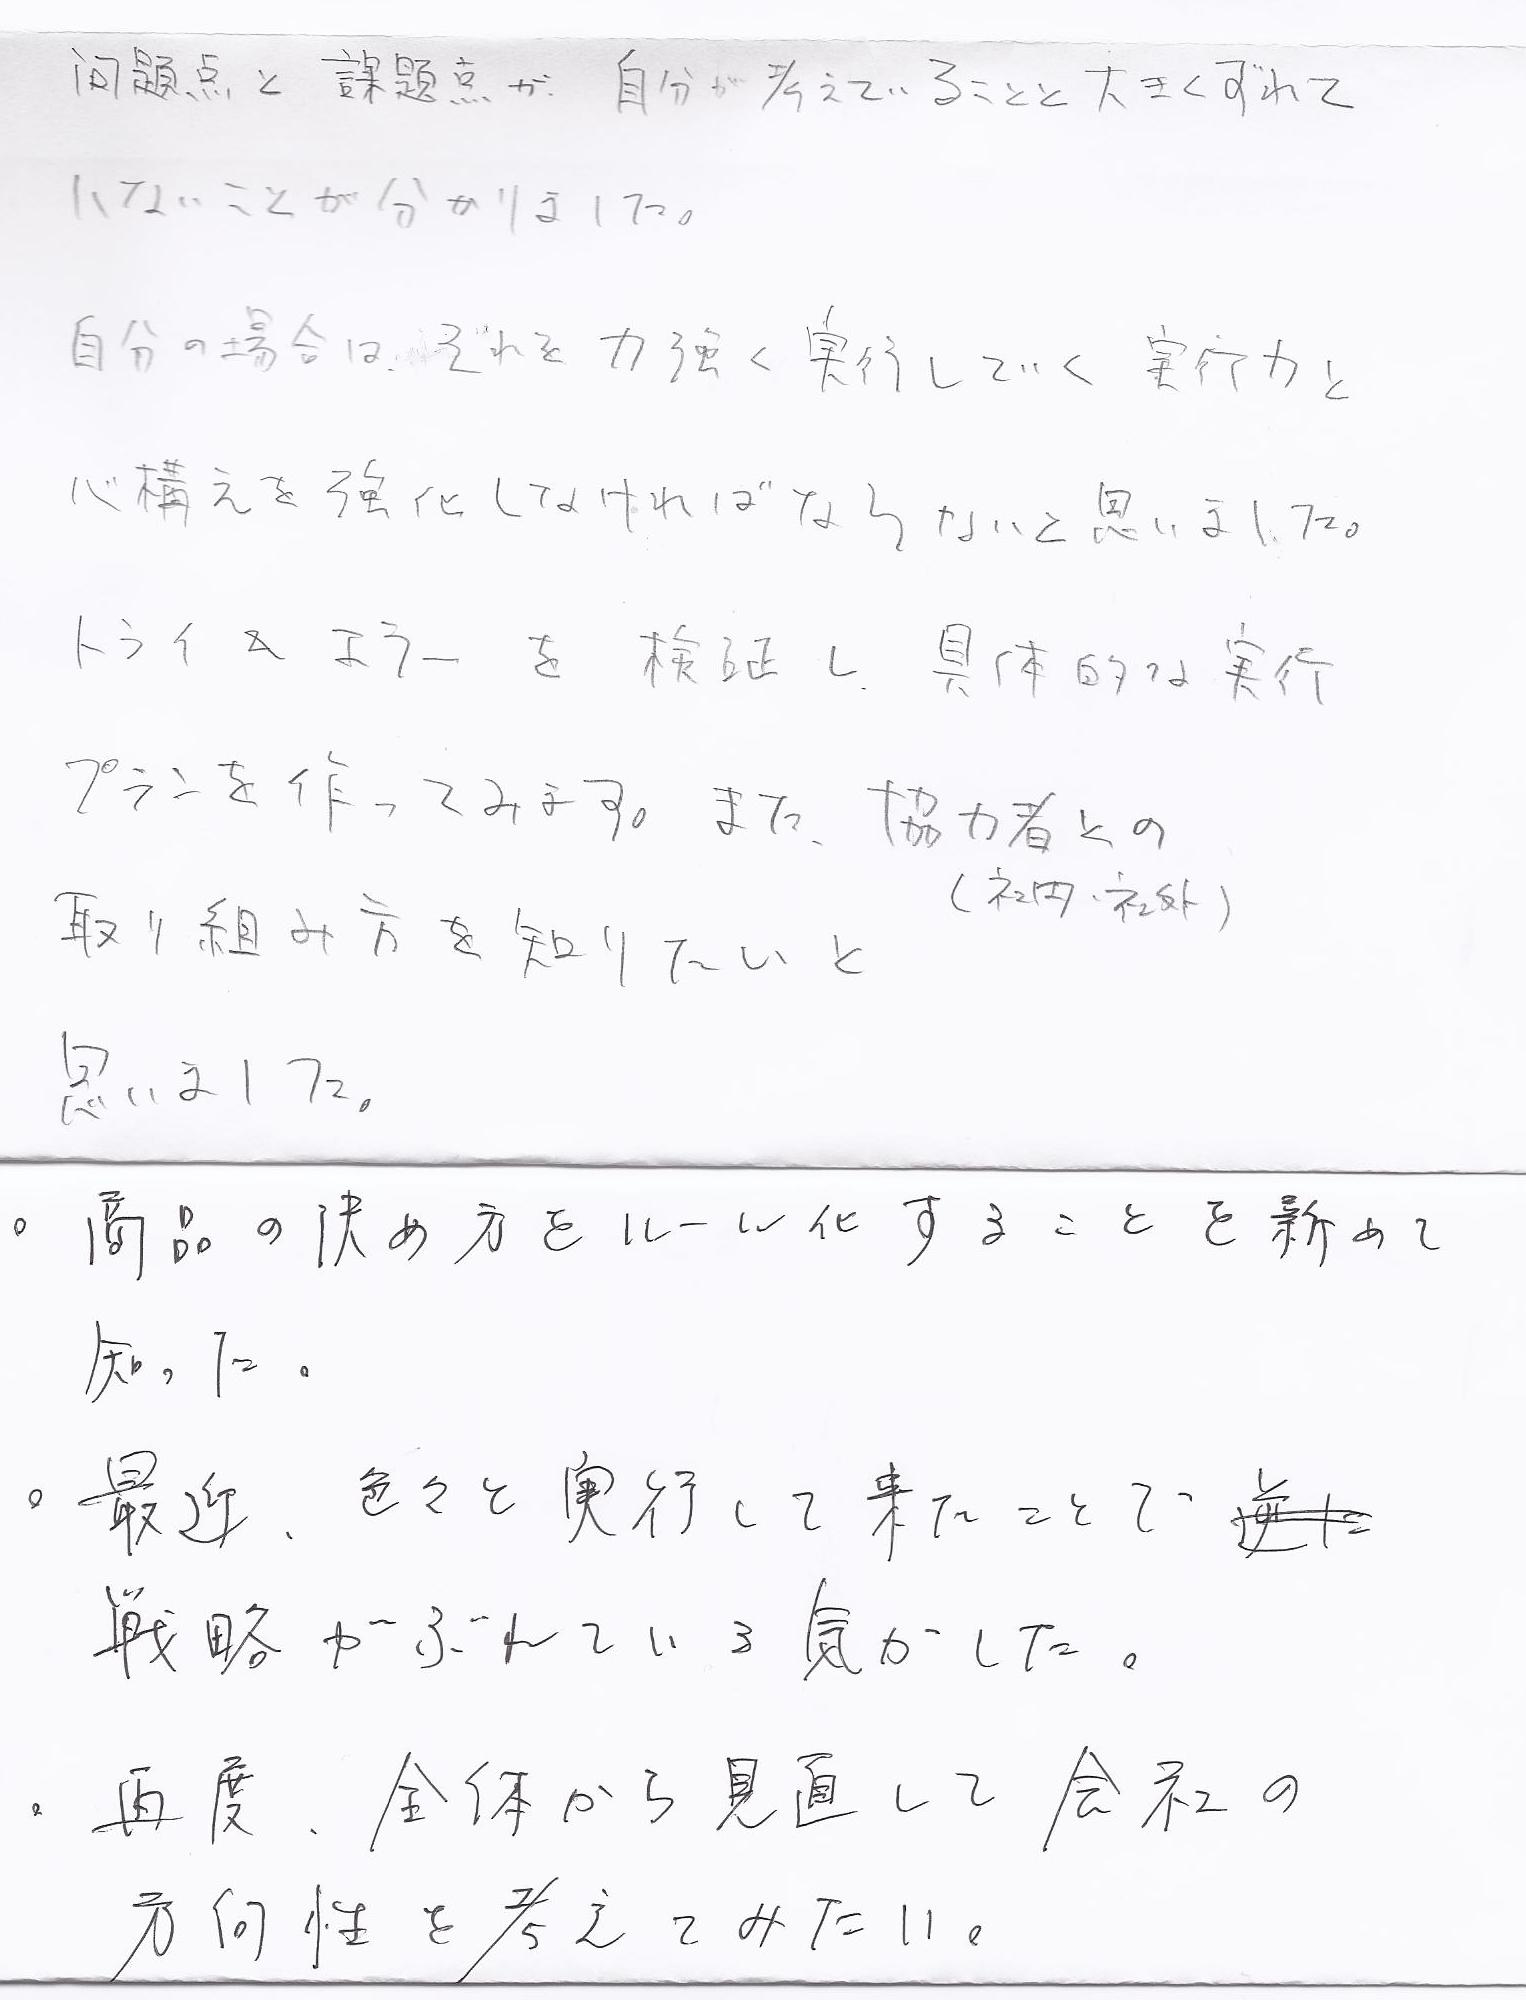 問題点と課題点が、自分が考えていることと大きくずれて
いないことが分かりました。
自分の場合は、それを力強く実行していく実行力と
心構えを強化しなければならないと思いました。
トライ&エラーを検証し、具体的な実行
プランを作ってみます。また、協力者との
(社内・社外)
取り組み方を知りたいと
思いました。
。商品の決め方をルール化することを新めて
知った。
。最近、色々と実行して来たことで
戦略がぶれている気がした。
。再度、全体から見直して会社の
方向性を考えてみたい。